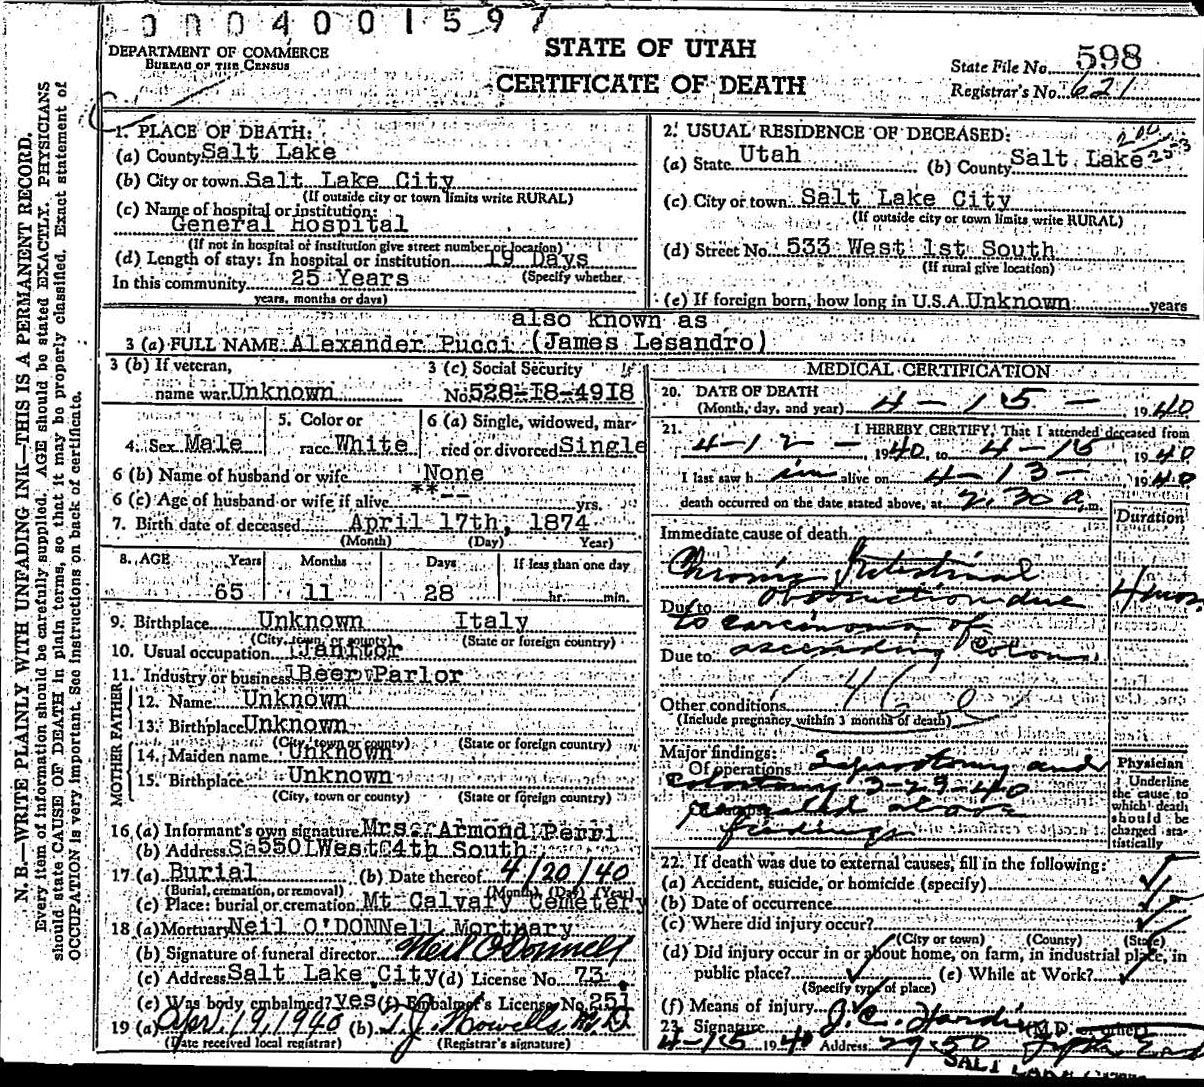 0004001597
DEPARTMENT OF COMMERCE
BUREAU OF THE CENSUS
STATE OF UTAH
CERTIFICATE OF DEATH
State File No. 598
Registrar's No. 621
N. B.—WRITE PLAINLY WITH UNFADING INK—THIS IS A PERMANENT RECORD.
Every item of information should be carefully supplied. AGE should be stated EXACTLY. PHYSICIANS
should state CAUSE OF DEATH in plain terms, so that it may be properly classified. Exact statement of
OCCUPATION is very important. See instructions on back of certificate.
1. PLACE OF DEATH:
(a) County Salt Lake
(b) City or town Salt Lake City
(If outside city or town limits write RURAL)
(c) Name of hospital or institution:
General Hospital
(If not in hospital or institution give street number or location)
(d) Length of stay: In hospital or institution 19 Days
(Specify whether
In this community 25 Years
years, months or days)
2. USUAL RESIDENCE OF DECEASED:
(a) State Utah (b) County Salt Lake
(c) City or town Salt Lake City
(If outside city or town limits write RURAL)
(d) Street No. 533 West 1st South
(If rural give location)
(e) If foreign born, how long in U.S.A. Unknown years
also known as
3 (a) FULL NAME Alexander Pucci (James Lesandro)
3 (b) If veteran,
name war Unknown
3 (c) Social Security
No. 528-18-4918
4. Sex Male
5. Color or
race White
6 (a) Single, widowed, mar-
ried or divorced Single
6 (b) Name of husband or wife None
6 (c) Age of husband or wife if alive **-- yrs.
7. Birth date of deceased April 17th, 1874
(Month) (Day) Year)
8. AGE Years Months Days If less than one day
65 11 28 hr. min.
9. Birthplace Unknown Italy
(City, town or county) (State or foreign country)
10. Usual occupation Janitor
11. Industry or business Beer Parlor
FATHER
12. Name Unknown
13. Birthplace Unknown
(City, town or county) (State or foreign country)
MOTHER
14. Maiden name Unknown
15. Birthplace Unknown
(City, town or county) (State or foreign country)
16 (a) Informant's own signature Mrs. Armond Perri
(b) Address 550 West 4th South
17 (a) Burial (b) Date thereof 4/20/40
(Burial, cremation, or removal) (Month) (Day) (Year)
(c) Place: burial or cremation Mt Calvary Cemetery
18 (a) Mortuary Neil O'DONNell Mortuary
(b) Signature of funeral director Neil O'Donnell
(c) Address Salt Lake City (d) License No. 73
(e) Was body embalmed? yes (f) Embalmer's License No. 251
19 (a) Apr. 19, 1940 (b) T. J. Howells M D
(Date received local registrar) (Registrar's signature)
MEDICAL CERTIFICATION
20. DATE OF DEATH
(Month, day, and year) 4-15- 1940
21. I HEREBY CERTIFY, That I attended deceased from
4-12- 1940, to 4-15 1940
I last saw him alive on 4-13- 1940
death occurred on the date stated above, at 2:30 a.m.
Duration
Immediate cause of death
Chronic Intestinal
obstruction due 4 mos
Due to
to carcinoma of
Due to ascending Colon
46
Other conditions
(Include pregnancy within 3 months of death)
Major findings:
Of operations Laparotomy and
colostomy 3-29-40
revealed above
findings
Physician
Underline
the cause to
which death
should be
charged sta-
tistically
22. If death was due to external causes, fill in the following:
(a) Accident, suicide, or homicide (specify)
(b) Date of occurrence
(c) Where did injury occur?
(City or town) (County) (State)
(d) Did injury occur in or about home, on farm, in industrial place, in
public place? (e) While at Work?
(Specify type of place)
(f) Means of injury
23. Signature J. C. (M.D. or other)
4-15 1940 Address 2950
SALT LAKE